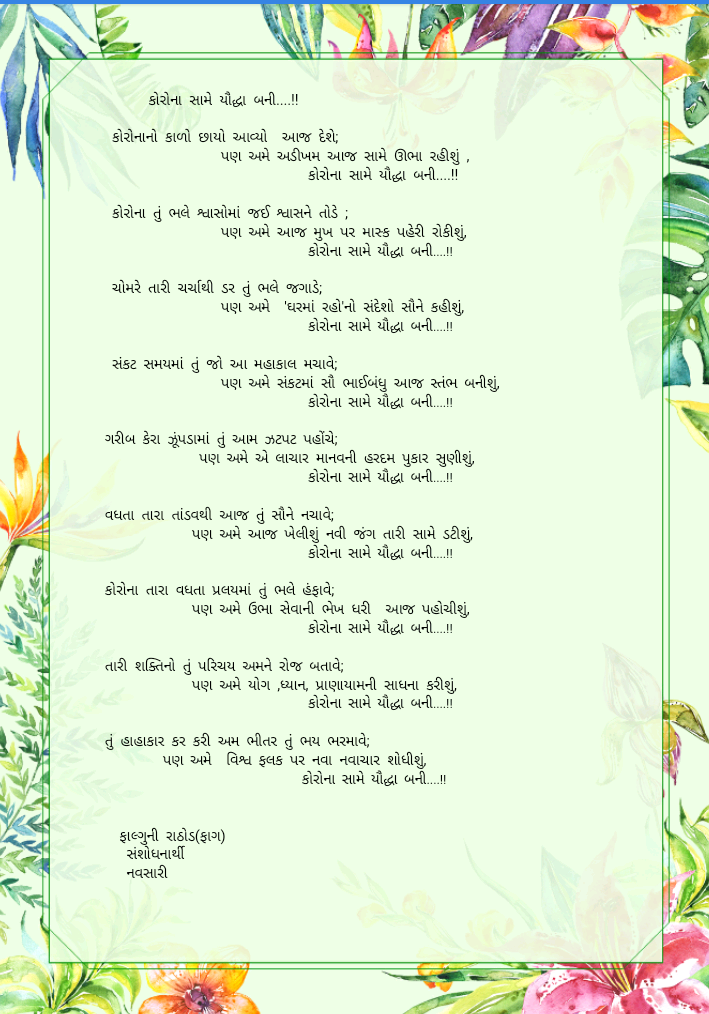 કોરોના સામે યૌદ્ધા બની....!!
કોરોનાનો કાળો છાયો આવ્યો આજ દેશે;
પણ અમે અડીખમ આજ સામે ઊભા રહીશું ,
કોરોના સામે યૌદ્ધા બની....!!
કોરોના તું ભલે શ્વાસોમાં જઈ શ્વાસને તોડે ;
પણ અમે આજ મુખ પર માસ્ક પહેરી રોકીશું,
કોરોના સામે યૌદ્ધા બની....!!
ચોમરે તારી ચર્ચાથી ડર તું ભલે જગાડે;
પણ અમે 'ઘરમાં રહો'નો સંદેશો સૌને કહીશું,
કોરોના સામે યૌદ્ધા બની....!!
સંકટ સમયમાં તું જો આ મહાકાલ મચાવે;
પણ અમે સંકટમાં સૌ ભાઈબંધુ આજ સ્તંભ બનીશું,
કોરોના સામે યૌદ્ધા બની....!!
ગરીબ કેરા ઝૂંપડામાં તું આમ ઝટપટ પહોંચે;
પણ અમે એ લાચાર માનવની હરદમ પુકાર સુણીશું,
કોરોના સામે યૌદ્ધા બની....!!
વધતા તારા તાંડવથી આજ તું સૌને નચાવે;
પણ અમે આજ ખેલીશું નવી જંગ તારી સામે ડટીશું,
કોરોના સામે યૌદ્ધા બની....!!
કોરોના તારા વધતા પ્રલયમાં તું ભલે હંફાવે;
પણ અમે ઉભા સેવાની ભેખ ધરી આજ પહોચીશું,
કોરોના સામે યૌદ્ધા બની....!!
તારી શક્તિનો તું પરિચય અમને રોજ બતાવે;
પણ અમે યોગ ,ધ્યાન, પ્રાણાયામની સાધના કરીશું,
કોરોના સામે યૌદ્ધા બની....!!
તું હાહાકાર કર કરી અમ ભીતર તું ભય ભરમાવે;
પણ અમે વિશ્વ ફલક પર નવા નવાચાર શોધીશું,
કોરોના સામે યૌદ્ધા બની....!!
ફાલ્ગુની રાઠોડ(ફાગ)
સંશોધનાર્થી
નવસારી